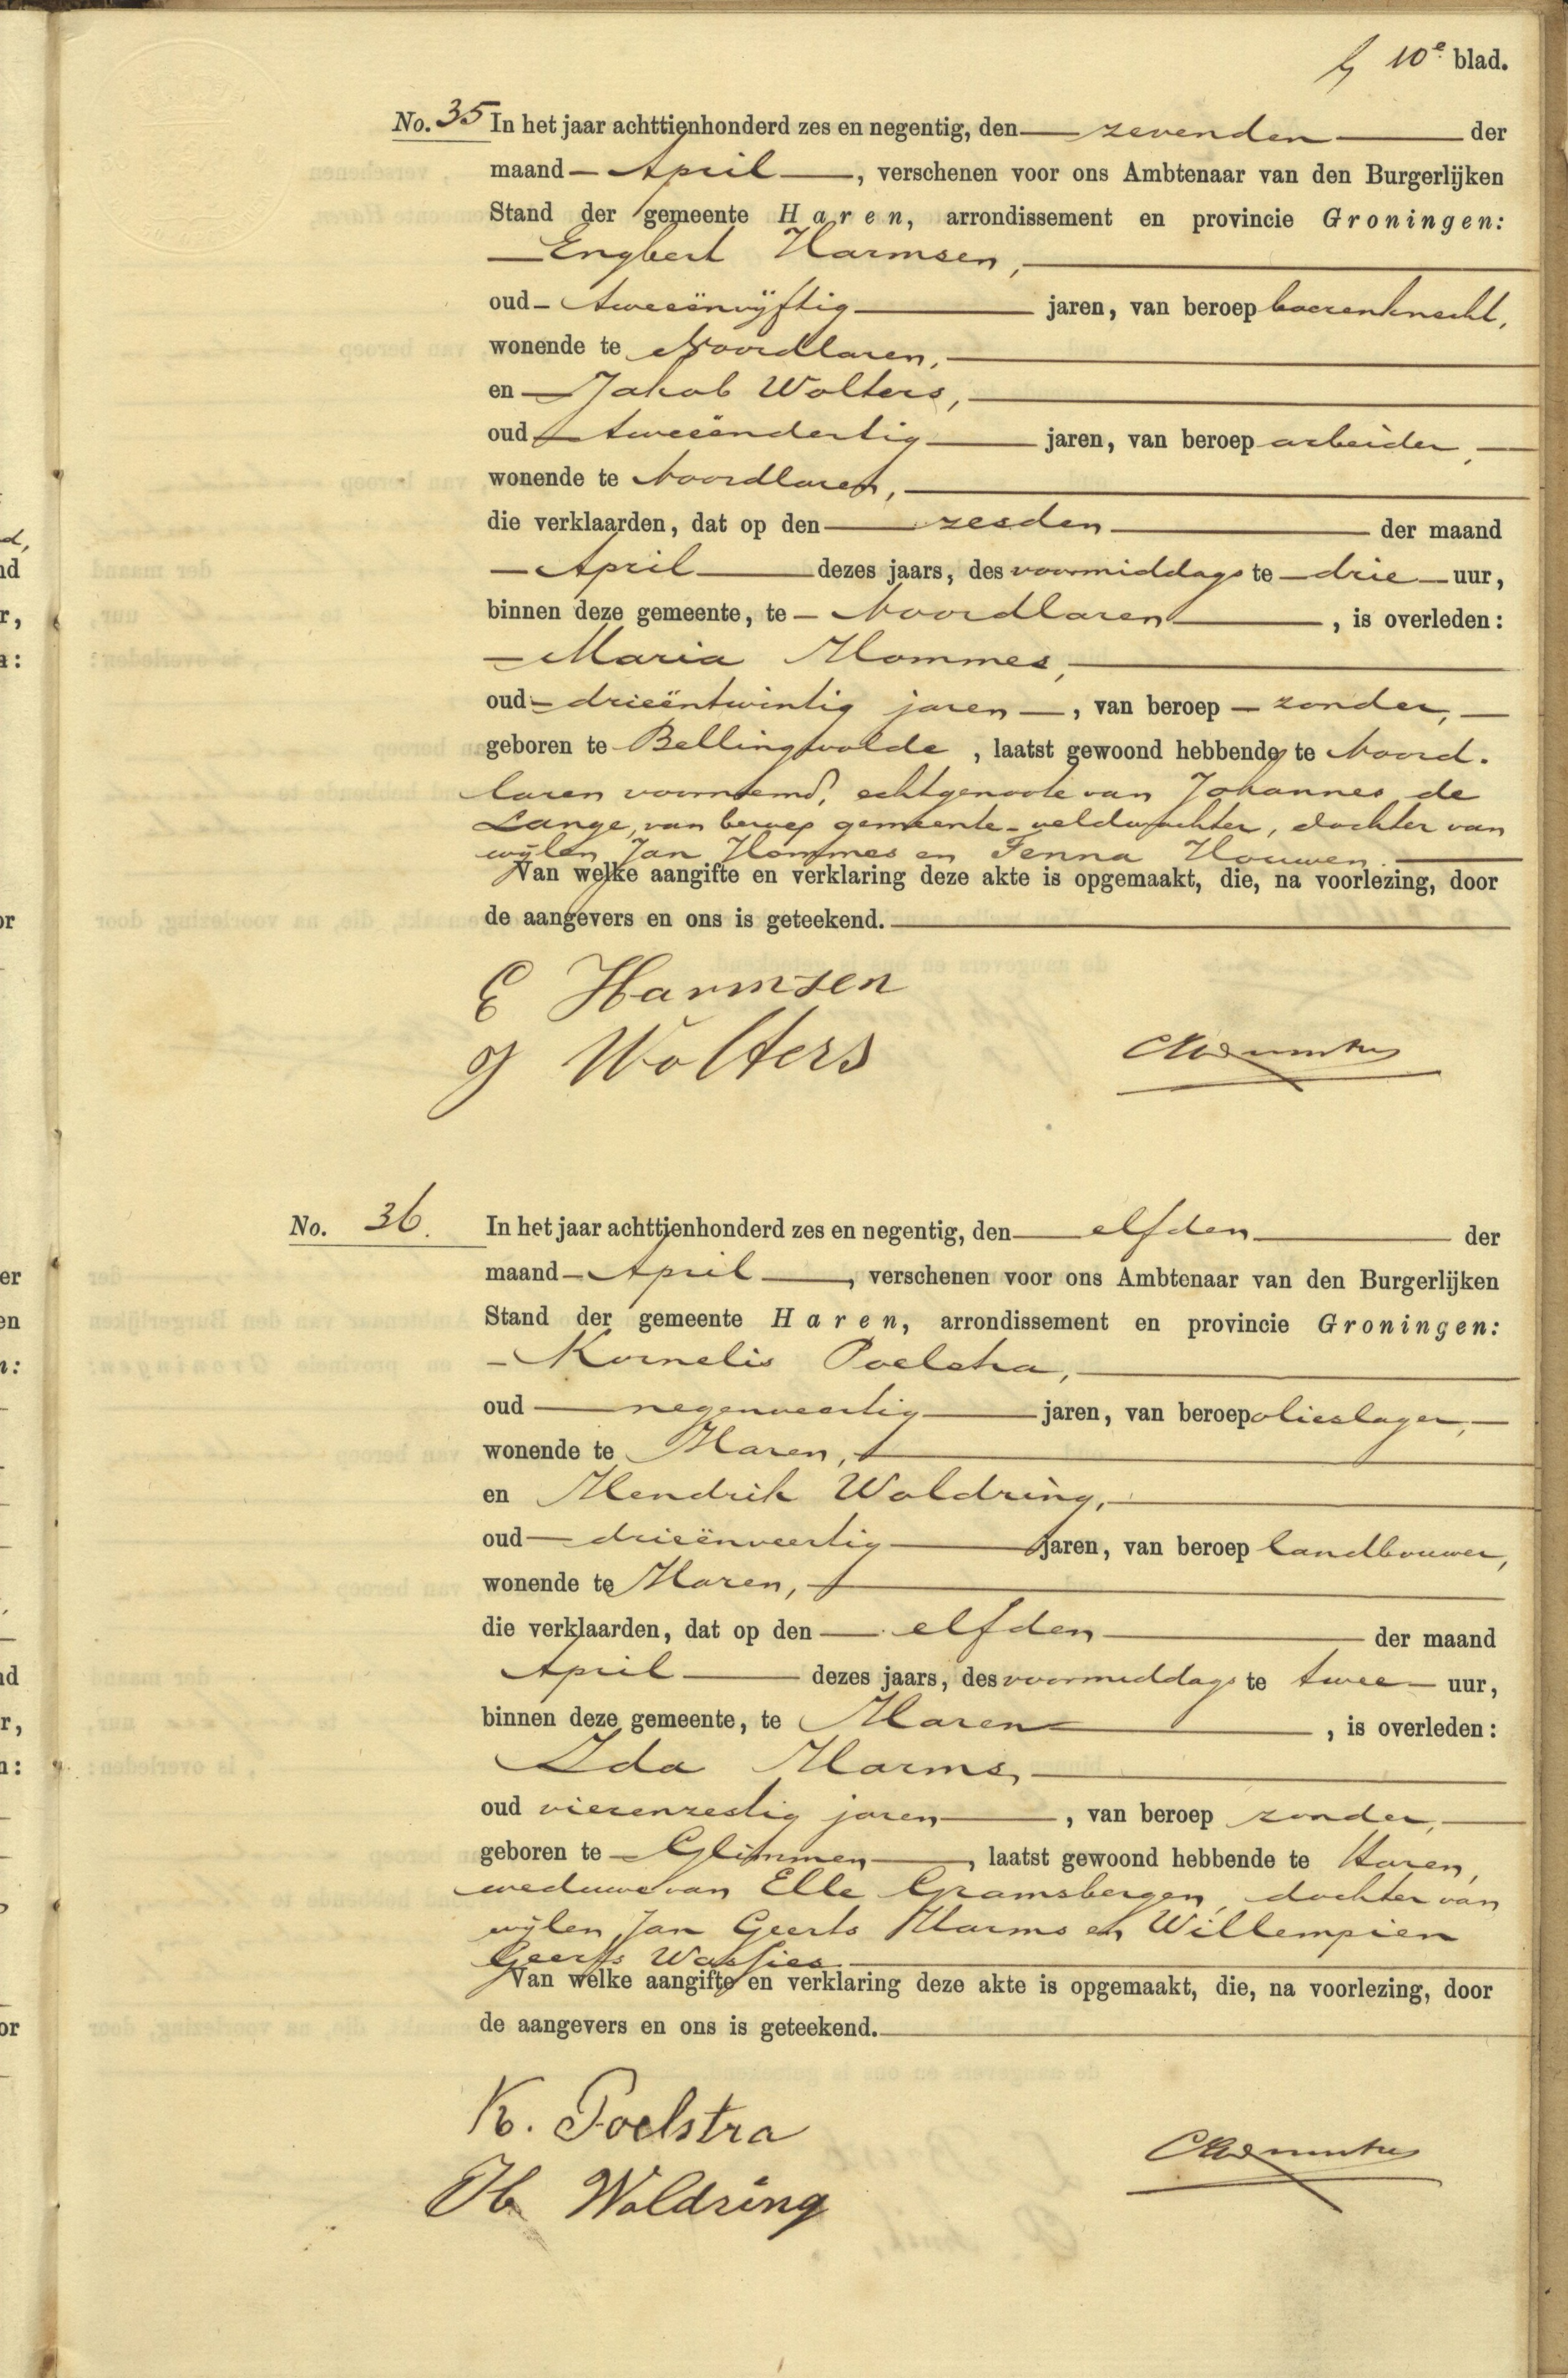 10e blad.
No. 35 In het jaar achttienhonderd zes en negentig, den zevenden der
maand April, verschenen voor ons Ambtenaar van den Burgerlijken
Stand der gemeente Haren, arrondissement en provincie Groningen:
Engbert Harmsen,
oud tweeënvijftig jaren, van beroep boerenknecht,
wonende te Noordlaren,
en Jakob Wolters,
oud tweeëndertig jaren, van beroep arbeider,
wonende te Noordlaren,
die verklaarden, dat op den zesden der maand
April dezes jaars, des voormiddags te drie uur,
binnen deze gemeente, te Noordlaren, is overleden:
Maria Hommes,
oud drieëntwintig jaren, van beroep zonder,
geboren te Bellingwolde, laatst gewoond hebbende te Noord-
laren voornoemd, echtgenoote van Johannes de
Lange, van beroep gemeente-veldwachter, dochter van
wijlen Jan Hommes en Fenna Houwen.
Van welke aangifte en verklaring deze akte is opgemaakt, die, na voorlezing, door
de aangevers en ons is geteekend.
E Harmsen
J Wolters
No. 36. In het jaar achttienhonderd zes en negentig, den elfden der
maand April, verschenen voor ons Ambtenaar van den Burgerlijken
Stand der gemeente Haren, arrondissement en provincie Groningen:
Kornelis Poelstra,
oud negenveertig jaren, van beroep olieslager,
wonende te Haren,
en Hendrik Woldring,
oud drieënveertig jaren, van beroep landbouwer,
wonende te Haren,
die verklaarden, dat op den elfden der maand
April dezes jaars, des voormiddags te twee uur,
binnen deze gemeente, te Haren, is overleden:
Ida Harms,
oud vierenzestig jaren, van beroep zonder,
geboren te Glimmen, laatst gewoond hebbende te Haren,
weduwe van Elle Gramsbergen, dochter van
wijlen Jan Geerts Harms en Willempien
Geerts Wassies.
Van welke aangifte en verklaring deze akte is opgemaakt, die, na voorlezing, door
de aangevers en ons is geteekend.
K. Poelstra
H Woldring